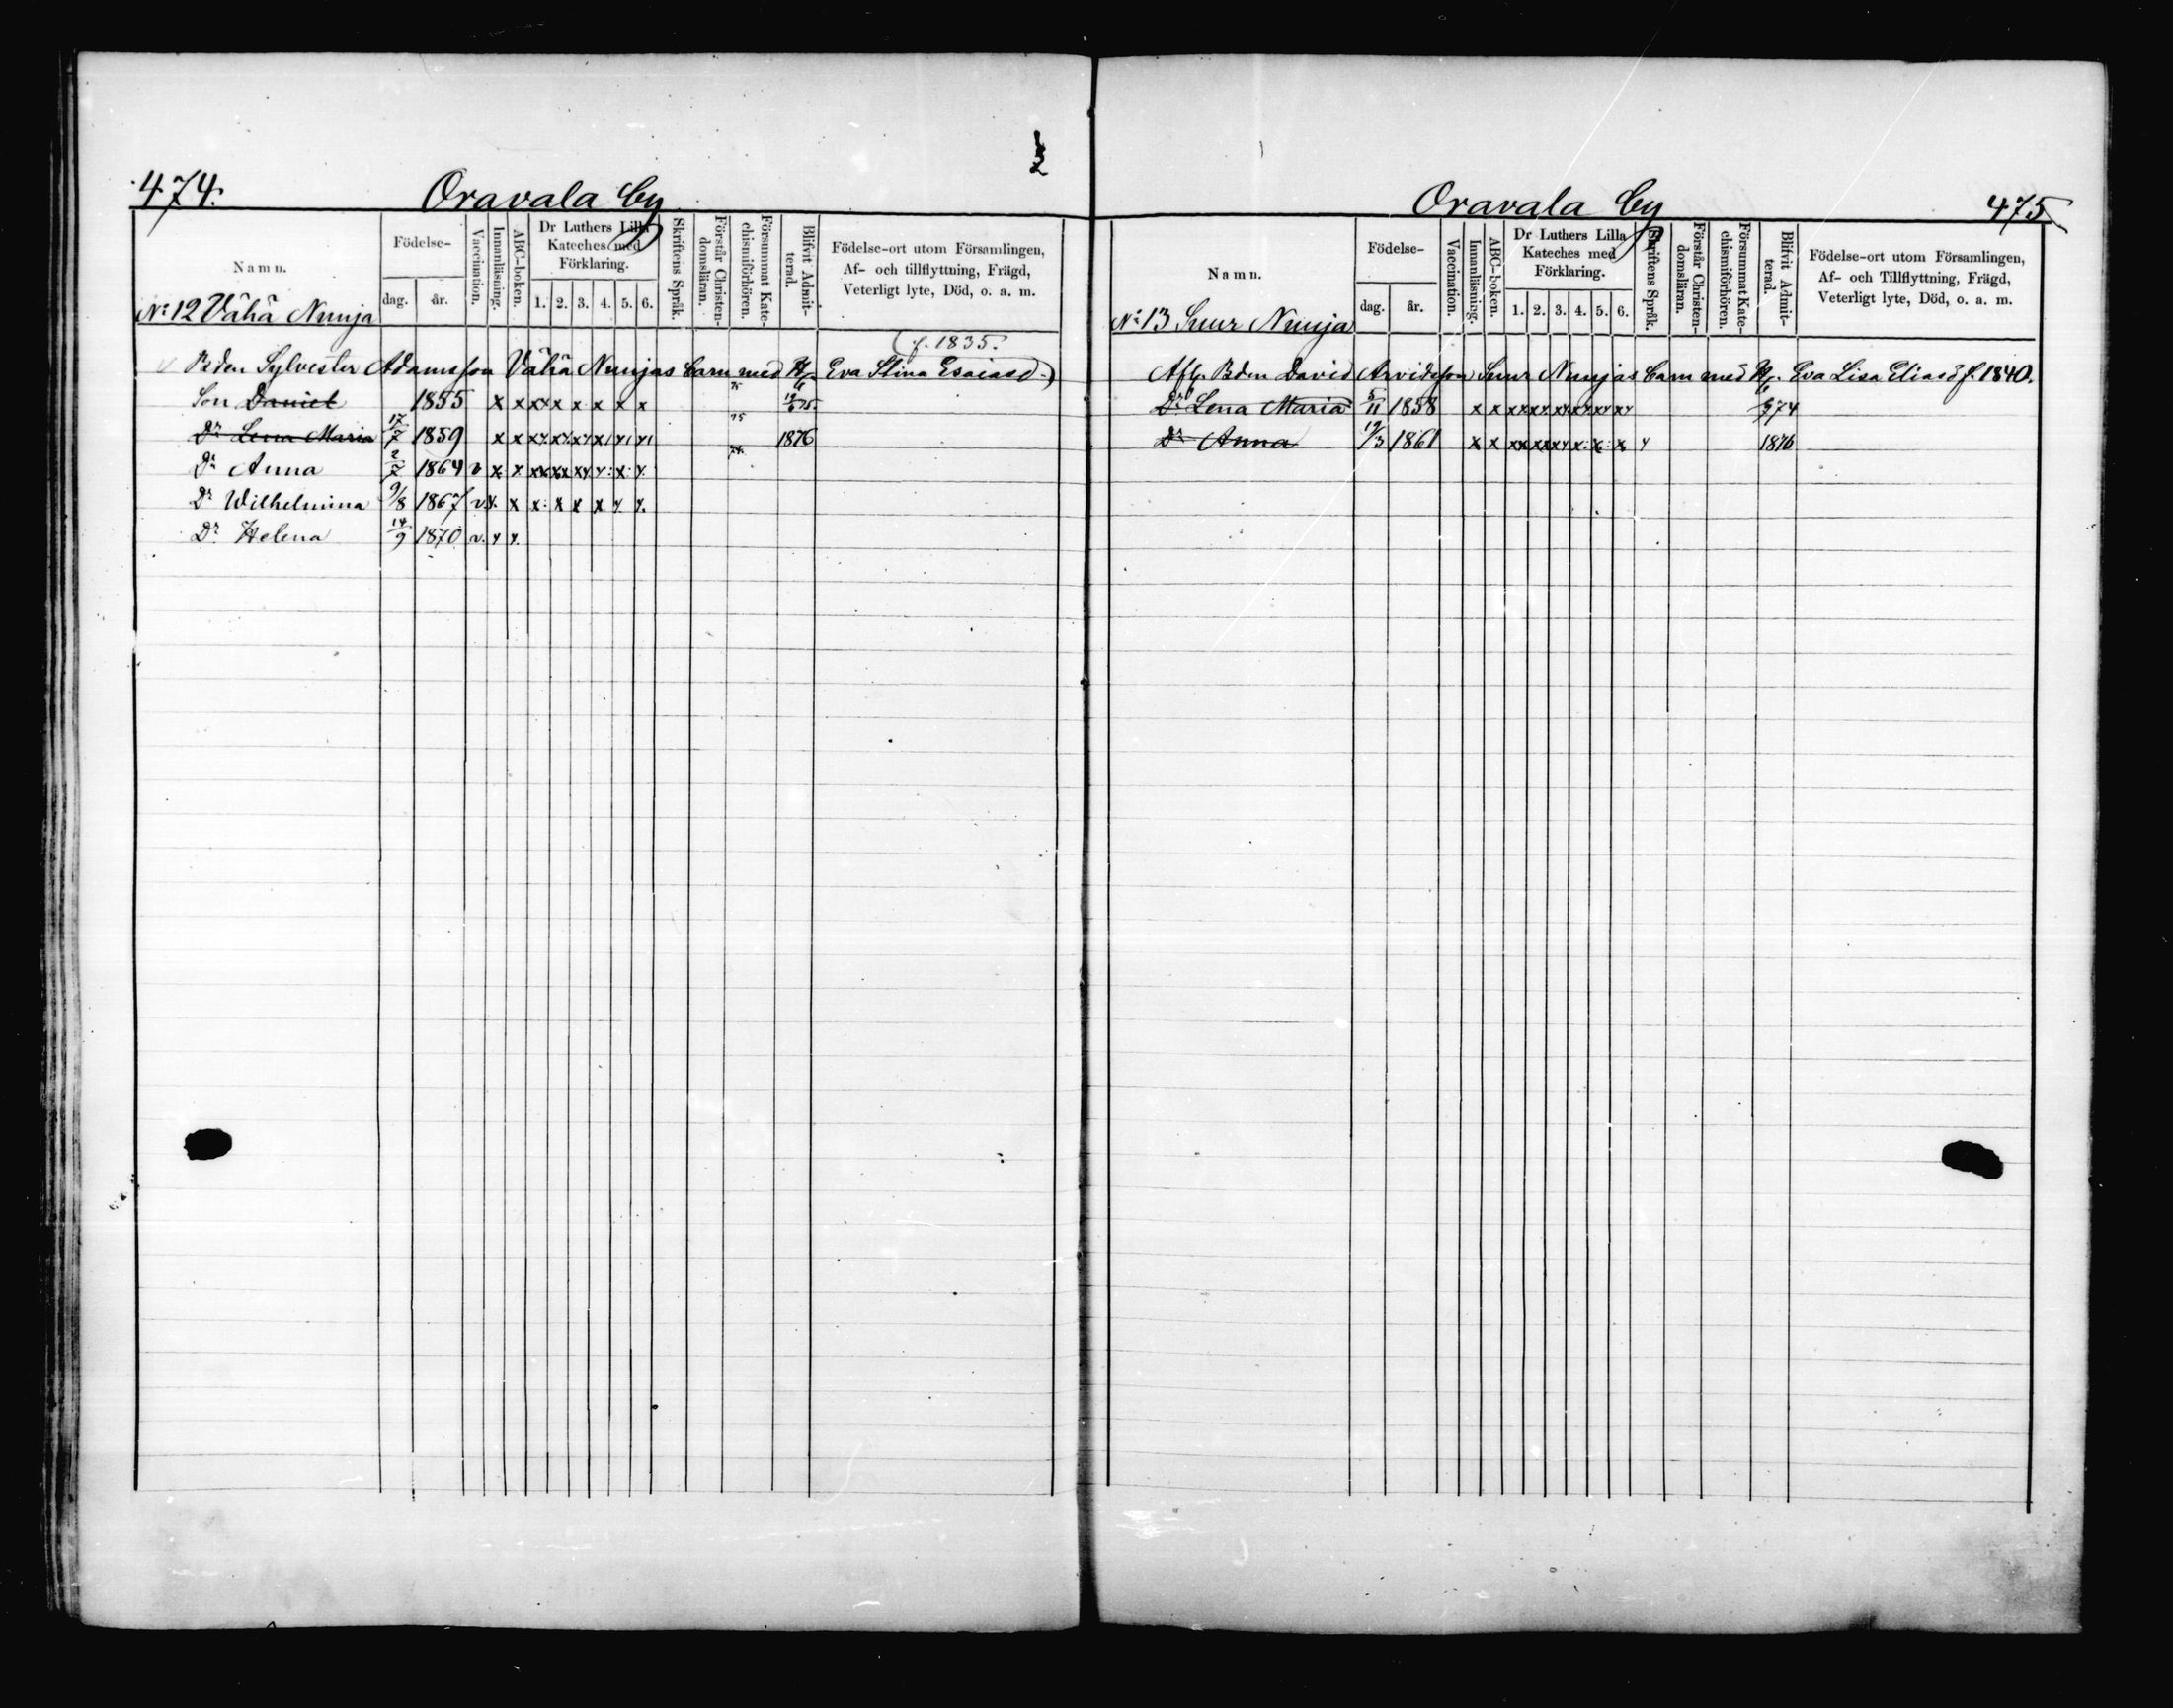 474.
Oravala by
Namn.
Födelse-
dag.
år.
Vaccination.
Innanläsning.
ABC-boken.
Dr Luthers Lilla
Kateches med
Förklaring.
1. 2. 3. 4. 5. 6.
Skriftens Språk.
Förstår Christen-
domsläran.
Försummat Kate-
chismiförhören.
Blifvit Admit-
terad.
Födelse-ort utom Församlingen,
Af- och tillflyttning, Frägd,
Veterligt lyte, Död, o. a. m.
No 12 Vähä Nunja
(f. 1835.
Bden Sylvester Adamsson Vähä Nunjas barn med H. Eva Stina Esaiasd.)
Son Daniel 1855 x x x x x x x x 75
Dr Lena Maria 17/7 1859 x x 75 1876
Dr Anna 2/7 1864 v x x
Dr Wilhelmina 9/8 1867 v x. x x: x x x y. y.
Dr Helena 14/9 1870 v. y y.
Oravala by
475
Namn.
Födelse-
dag.
år.
Vaccination.
Innanläsning.
ABC-boken.
Dr Luthers Lilla
Kateches med
Förklaring.
1. 2. 3. 4. 5. 6.
Skriftens Språk.
Förstår Christen-
domsläran.
Försummat Kate-
chismiförhören.
Blifvit Admit-
terad.
Födelse-ort utom Församlingen,
Af- och Tillflyttning, Frägd,
Veterligt lyte, Död, o. a. m.
No 13 Suur Nunja
Afl. Bden David Arvidsson Suur Nunjas barn med H. Eva Lisa Eliasd f. 1840.
Dr Lena Maria 5/11 1858 x x 74
Dr Anna 19/3 1861 x x 1876